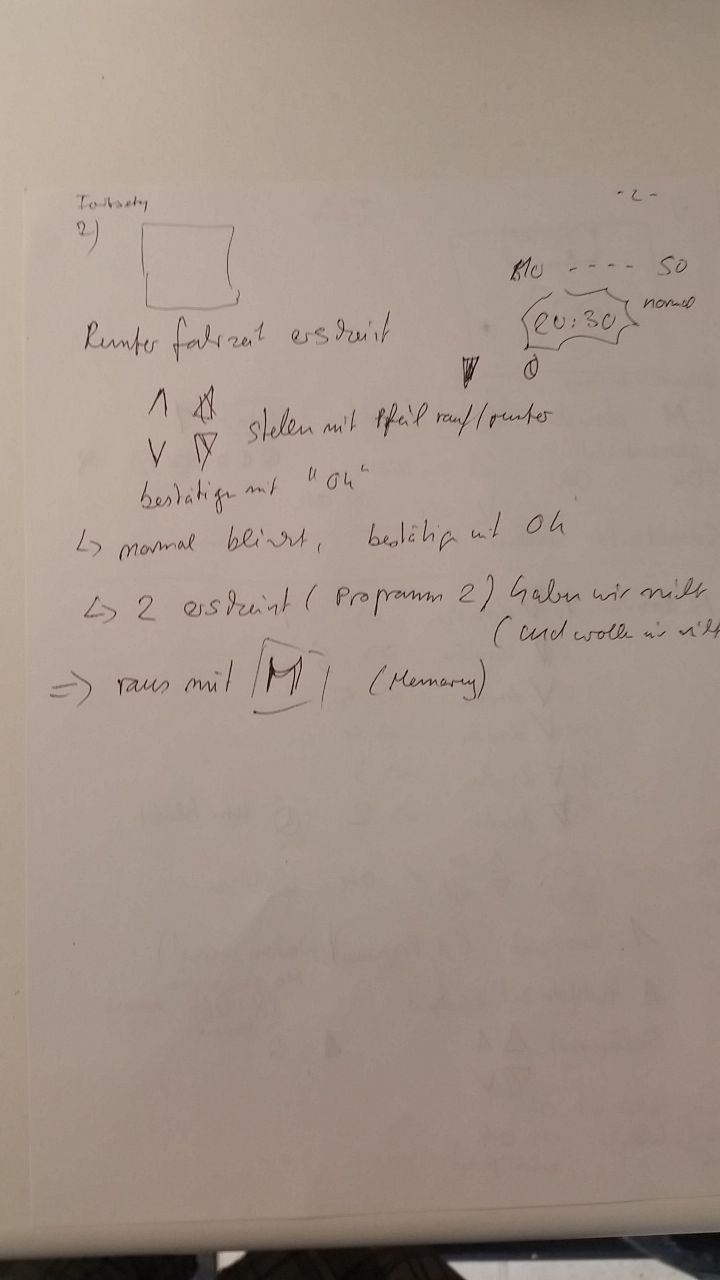 -2-
2)
Mo ---- So
20:30 normal
Runterfahrzeit erscheint
stellen mit Pfeil rauf/runter
bestätigen mit "OK"
↳ normal blinkt, bestätigen mit OK
↳ 2 erscheint (Programm 2) haben wir nicht
(und wollen wir nicht
=> raus mit M (Memory)